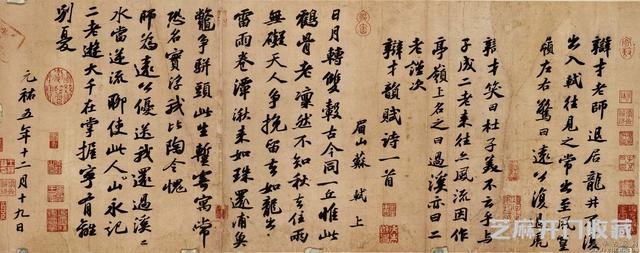 辯才老師退居龍井不復
出入軾往見之常出至風篁
嶺左右驚曰遠公復虎
辯才笑曰杜子美不云乎與
子成二老來往亦風流因作
亭嶺上名之曰過溪亦曰二
老謹次
辯才韻賦詩一首
眉山蘇軾上
日月轉雙轂古今同一丘惟此
鶴骨老凜然不知秋去住兩
無礙天人爭挽留去如龍出
雷雨卷潭湫來如珠還浦魚
鱉爭駢頭此生暫寄寓常
恐名實浮我比陶令愧
師為遠公優送我還過溪溪
水當逆流聊使此人山永記
二老遊大千在掌握寧有離
別憂
元祐五年十二月十九日
芝麻开门收藏